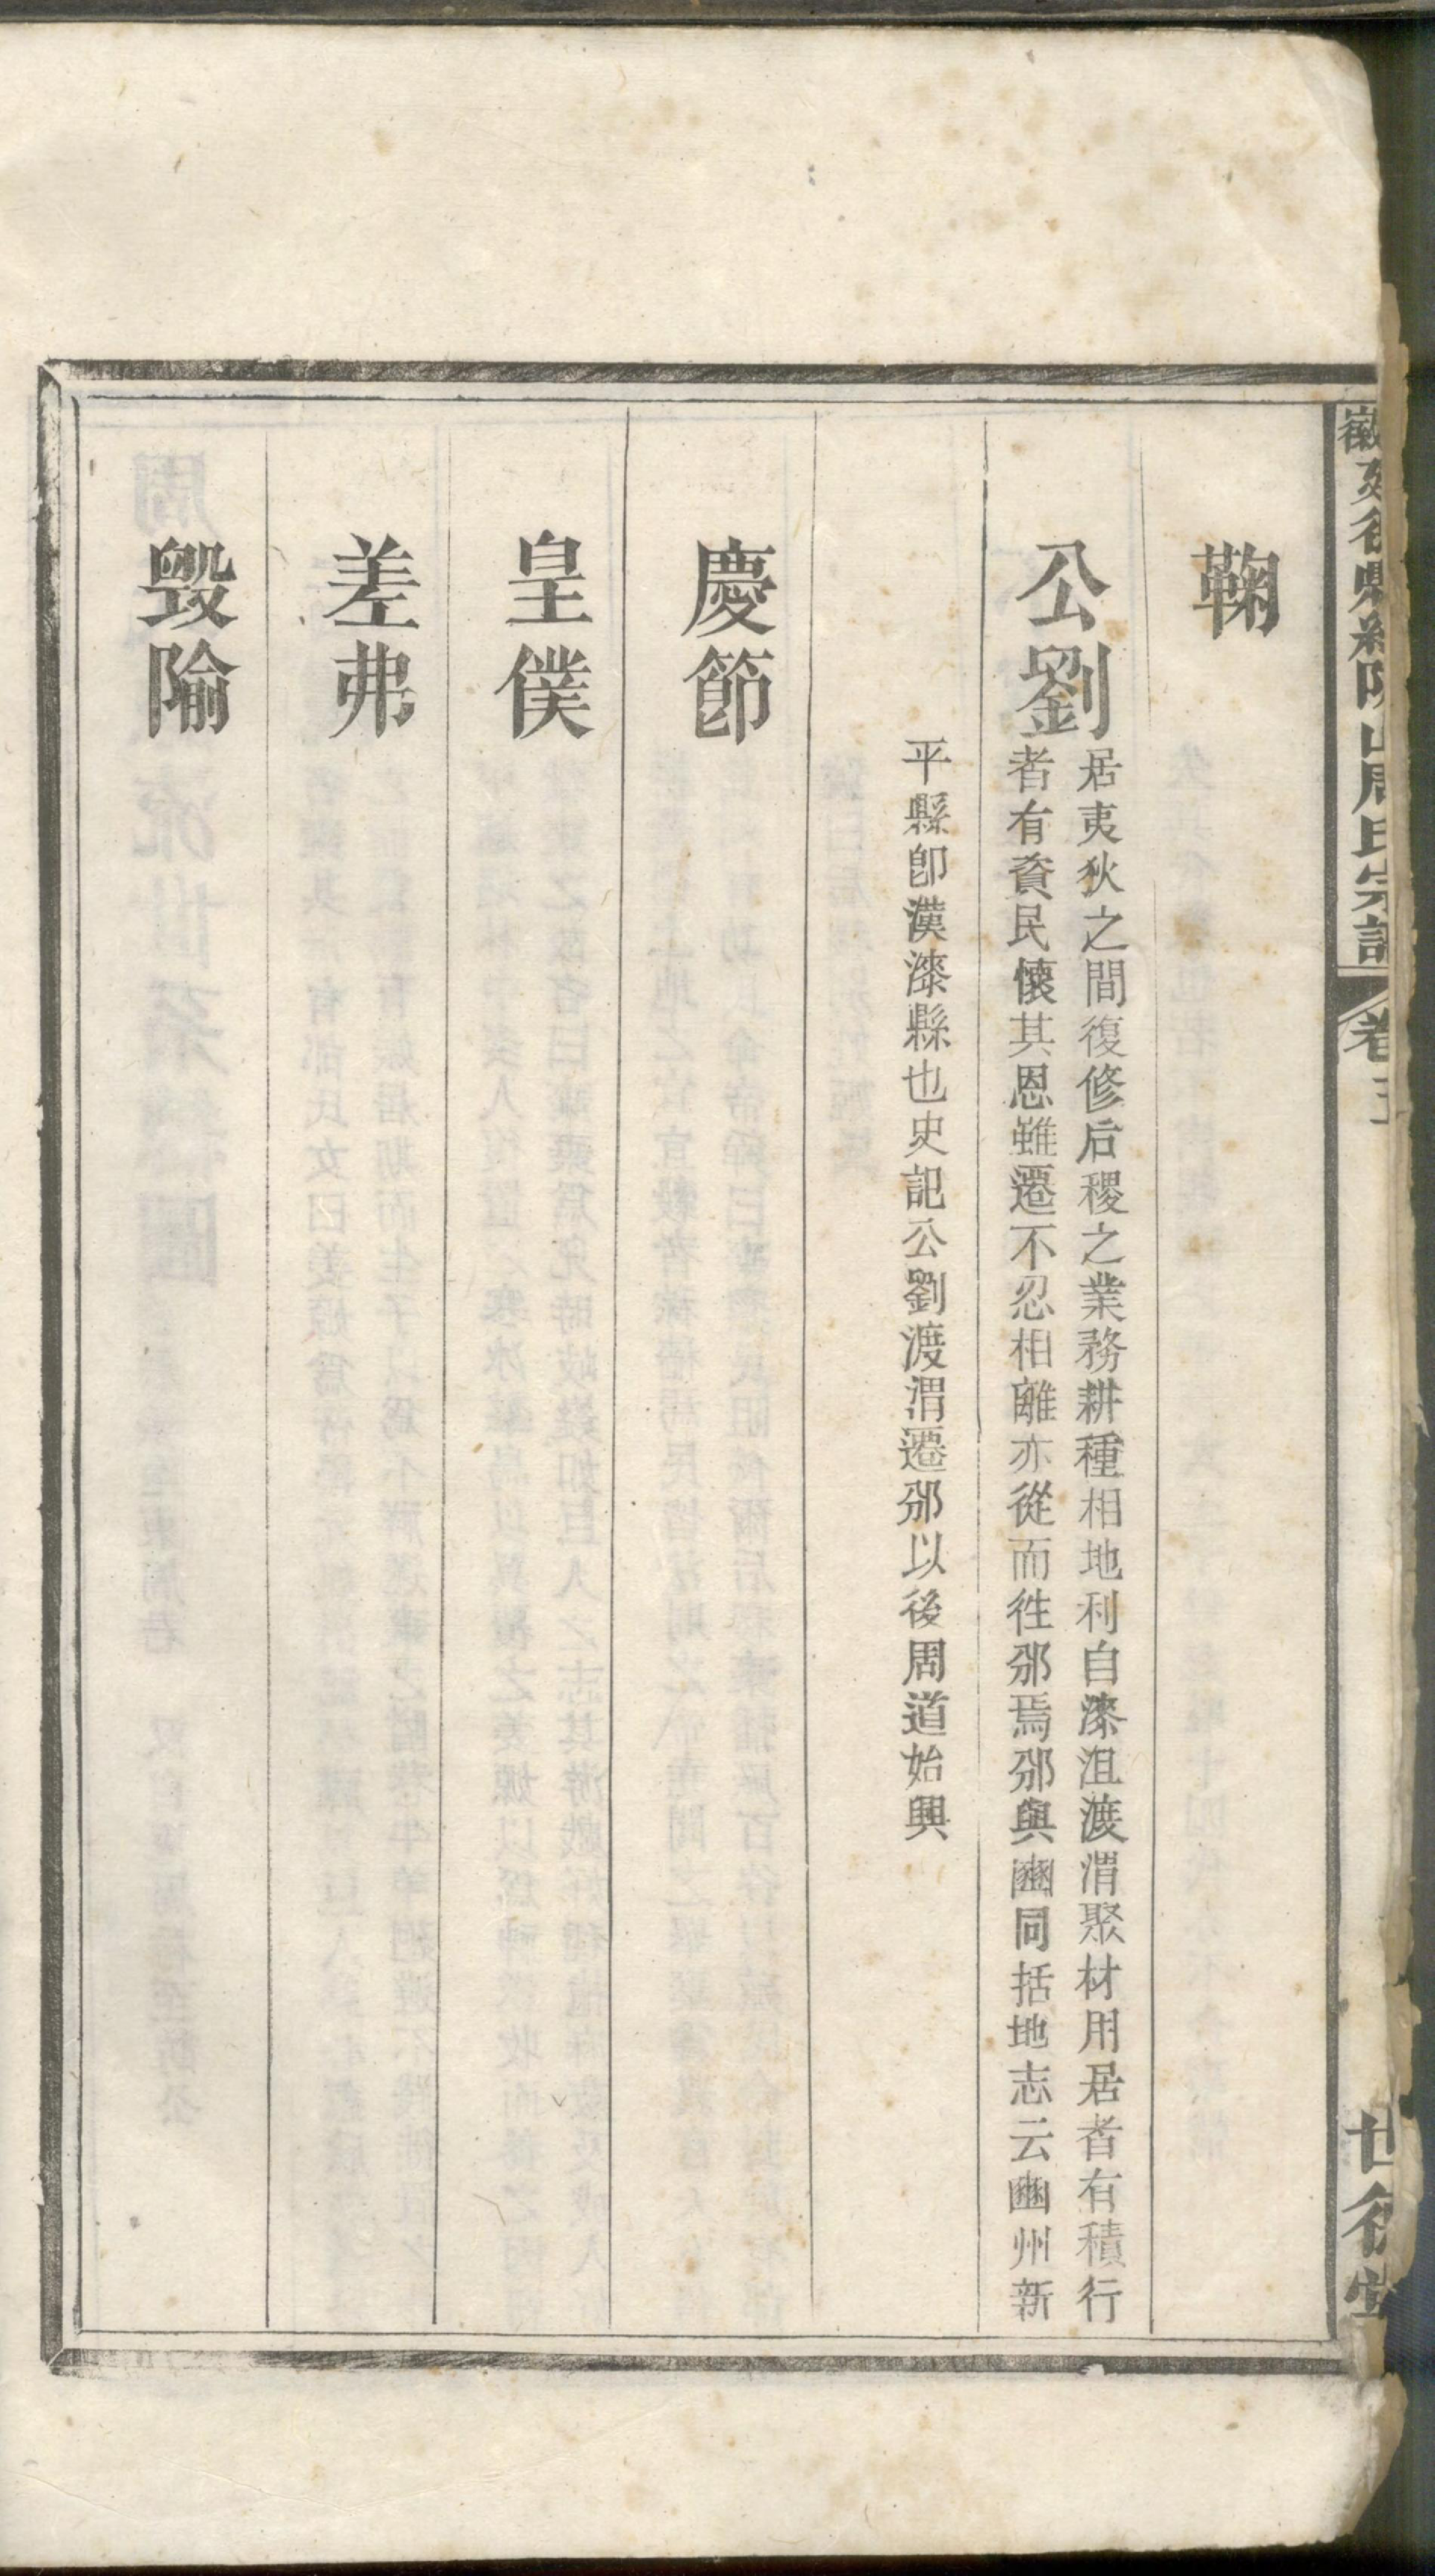 周氏宗譜
卷
鞠
公劉
居夷狄之間復修后稷之業務耕種相地利自漆沮渡渭聚材用居者有積行
者有資民懷其恩雖遷不忍相離亦從而徃邠焉邠與豳同括地志云豳州新
平縣卽漢漆縣也史記公劉渡渭遷邠以後周道始興
慶節
皇僕
差弗
毀隃